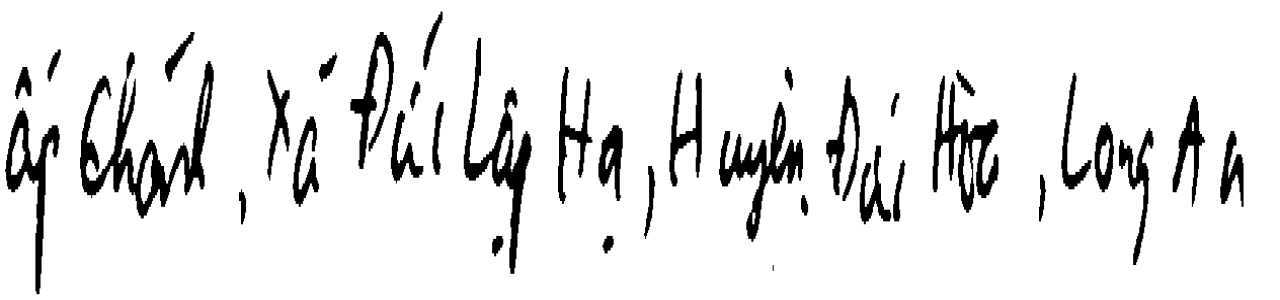 ấp Chánh, Xã Đức Lập Hạ, Huyện Đức Hòa, Long An